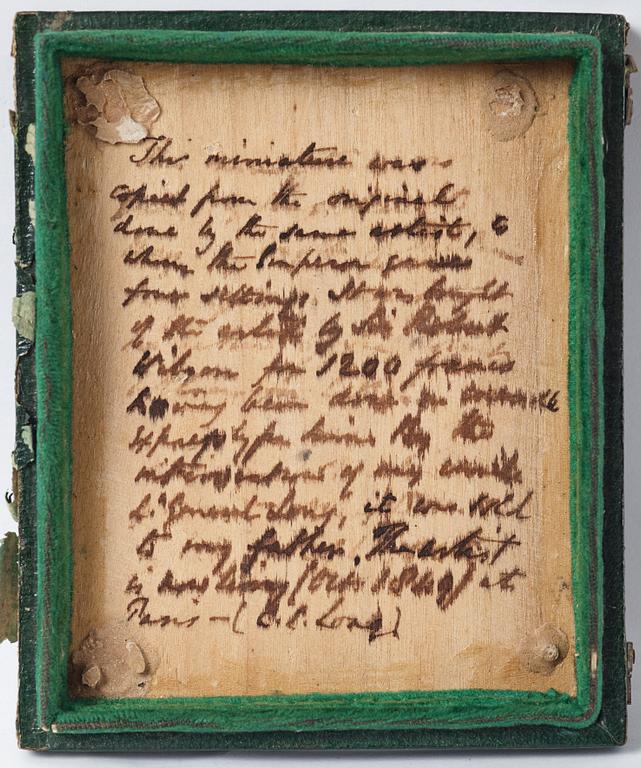 This miniature was
copied from the original
done by the same artist, to
whom the Emperor gave
four sittings. It was bought
of the artist by Sir Robert
Wilson for 1200 francs
having been done
expressly for him. By the
intervention of my uncle
Lt General Long, it was sold
to my father. The artist
is now living (Octr 1849) at
Paris - (C.E. Long)